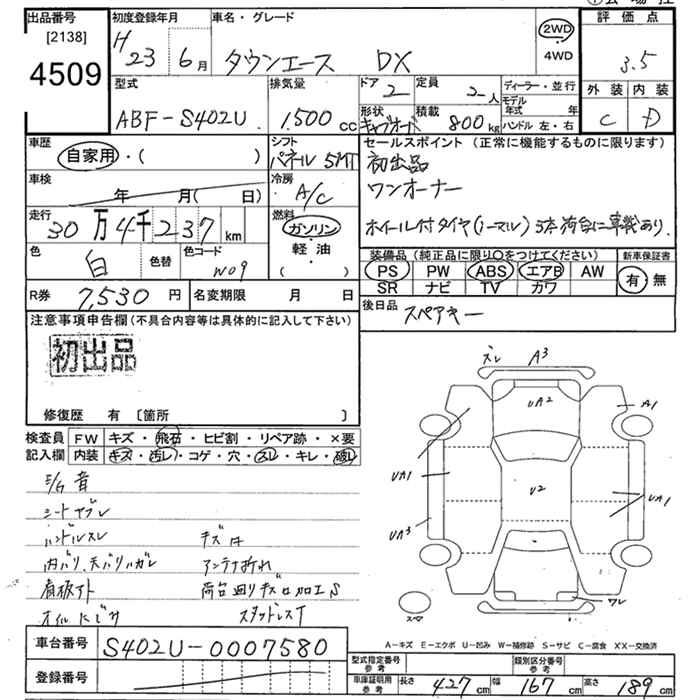 出品番号
[2138]
4509
初度登録年月
H23 6月
車名・グレード
タウンエース DX
2WD
4WD
評価点
3.5
外装 内装
C D
型式
ABF-S402U
排気量
1.500 cc
ドア
2
定員
2人
形状
積載
800kg
ディーラー・並行
モデル年式 年
ハンドル 左・右
車歴
自家用・( )
シフト
パネル 5MT
セールスポイント(正常に機能するものに限ります)
初出品
ワンオーナー
ホイール付タイヤ(ノーマル)5本荷台に車載あり.
車検
年 月( 日)
冷房
A/C
走行
30万4千237km
燃料
ガソリン
軽・油
( )
色
白
色替
色コード
W09
装備品(純正品に限り○をつけてください)
新車保証書
PS PW ABS エアB AW
SR ナビ TV カワ
有・無
R券
7,530円
名変期限 月 日
後日品
スペアキー
注意事項申告欄(不具合内容等は具体的に記入して下さい)
初出品
修復歴 有〔箇所 〕
検査員記入欄
FW キズ・飛石・ヒビ割・リペア跡・×要
内装 キズ・汚レ・コゲ・穴・スレ・キレ・破レ
E/G音
シートヤブレ
ハンドルスレ キズ有
内バリ、天バリハガレ アンテナ折れ
荷台廻りキズ凹加工S
オイルにじみ スタッドレスT
ズレ A3
UA2
A1
UA1
U2
UA1
UA3
ワレ
スペア
A-キズ E-エクボ U-凹み W-補修跡 S-サビ C-腐食 XX-交換済
車台番号
S402U-0007580
登録番号
型式指定番号 参考
類別区分番号 参考
車庫証明用 参考
長さ 427cm 幅 167cm 高さ 189cm